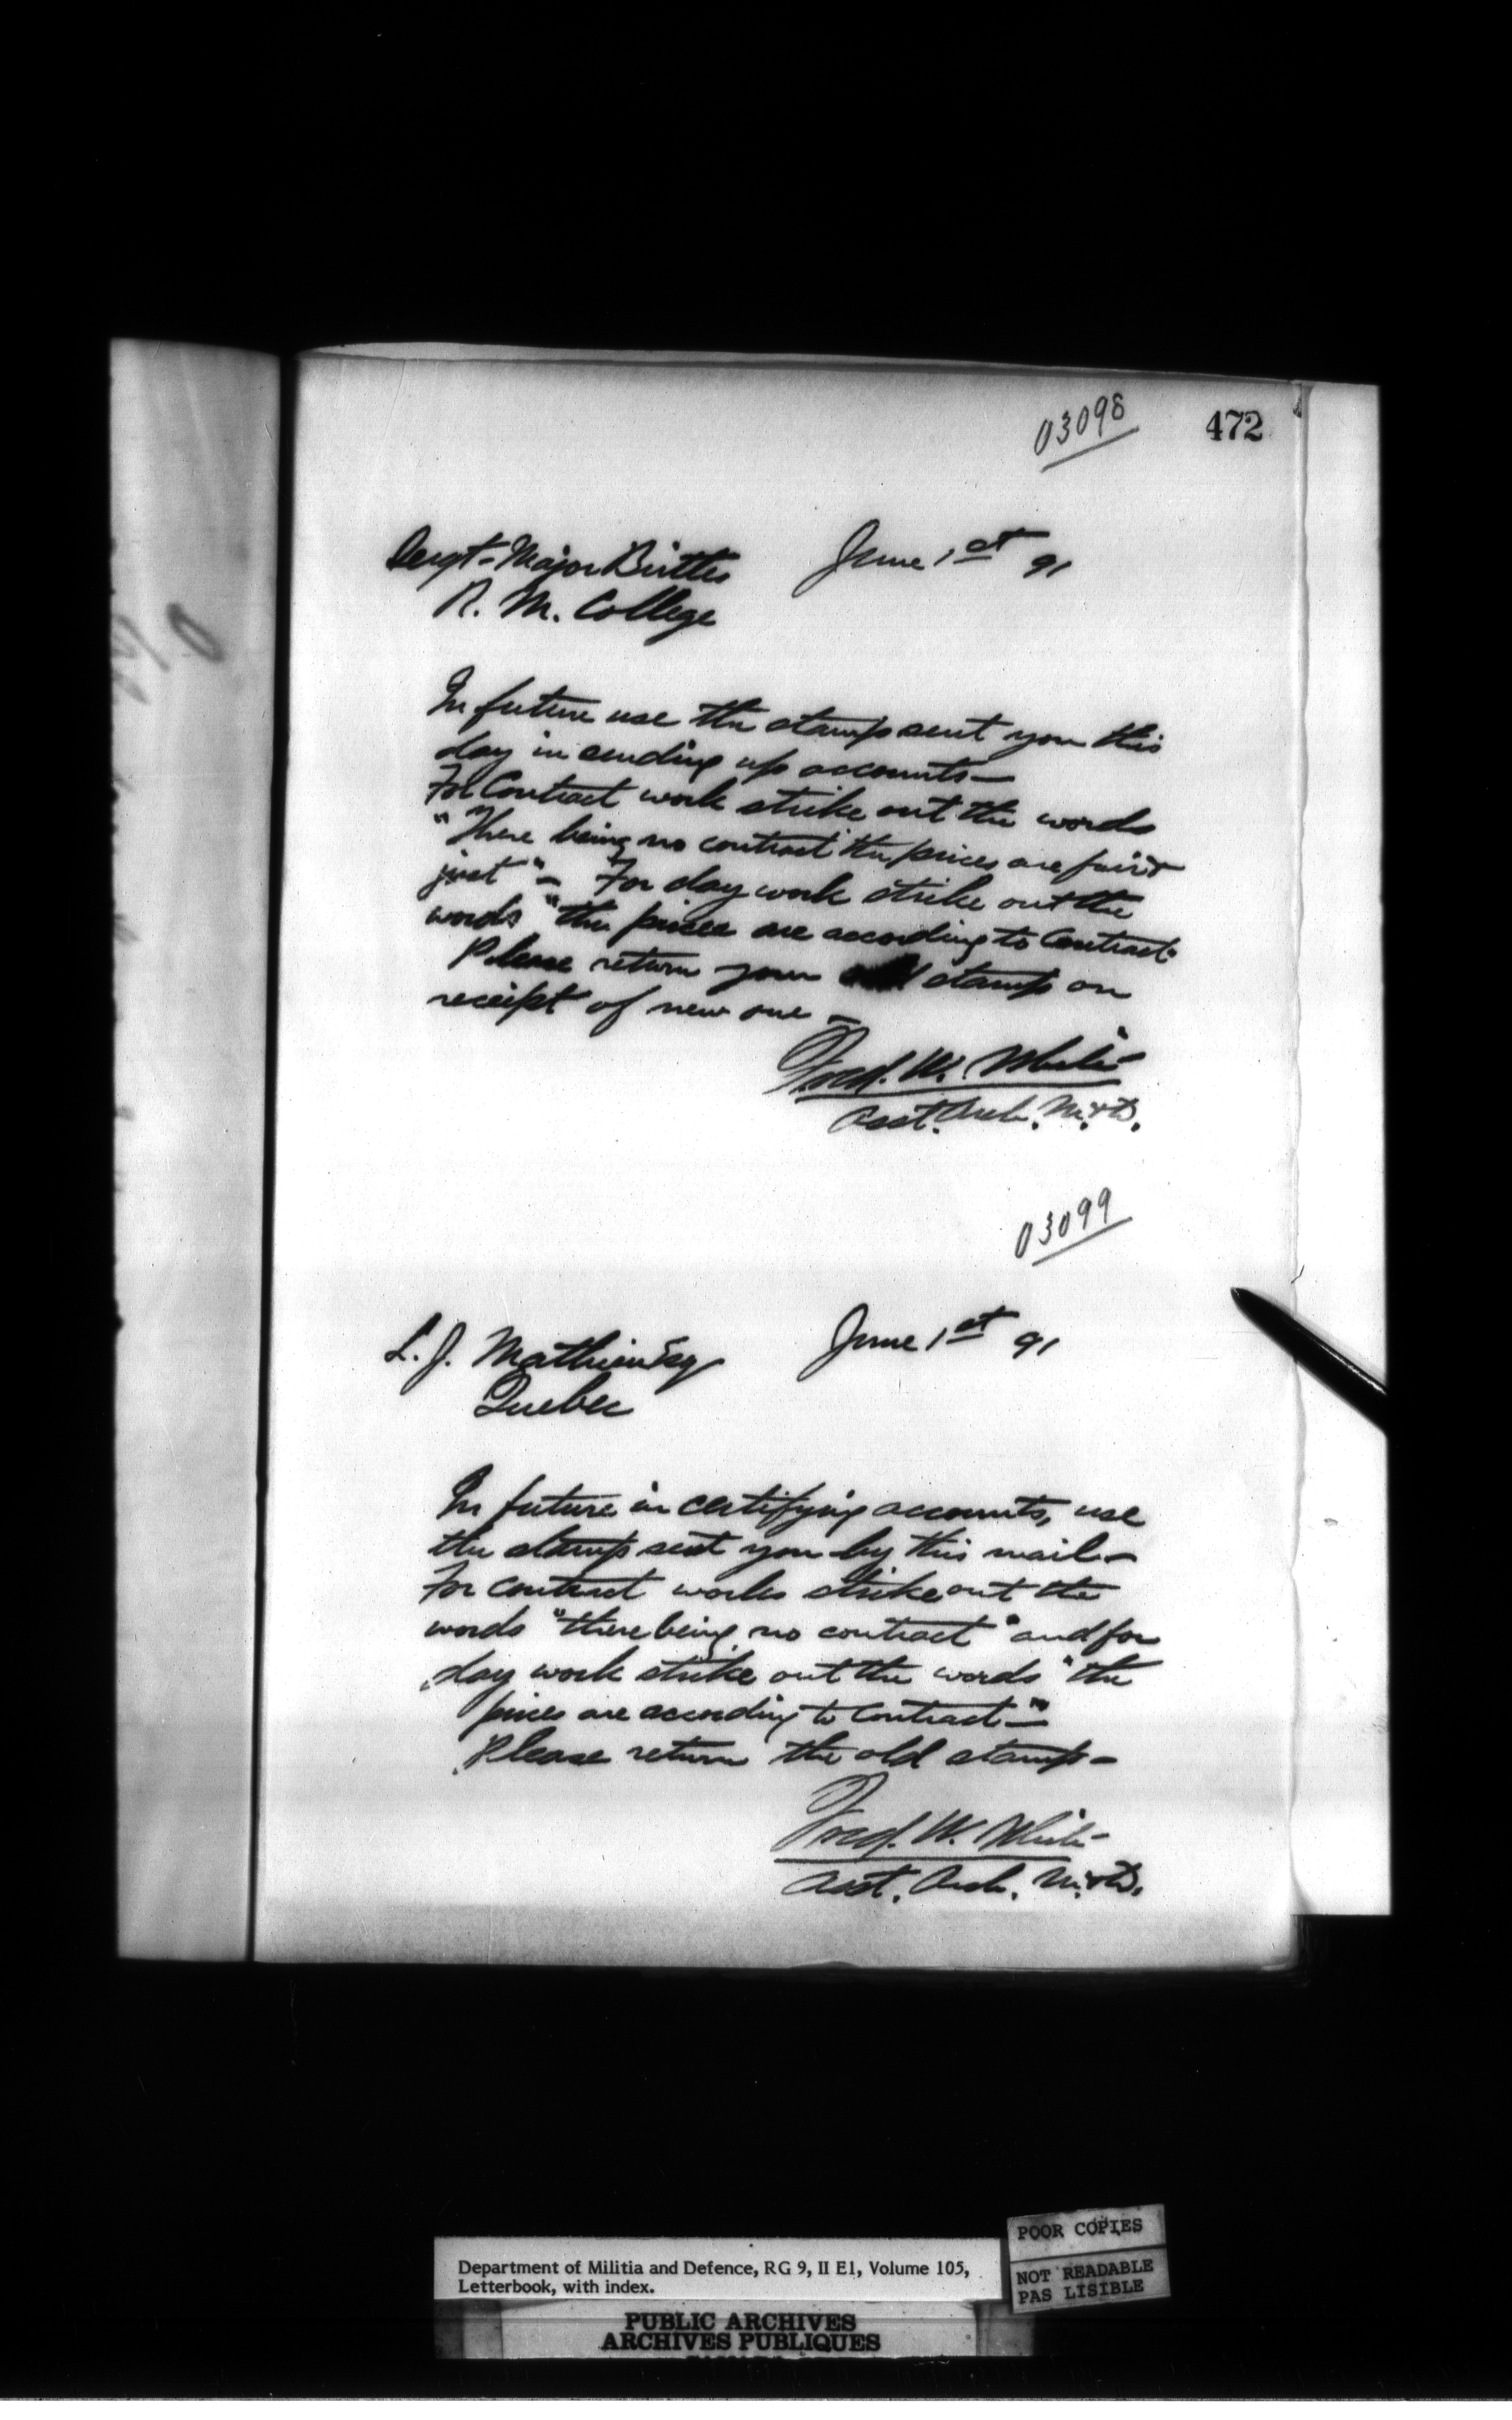 03098
472
Sergt-Major Birtles
June 1st 91
R. M. College
In future use the stamp sent you this
day in sending up accounts—
For Contract work strike out the words
"There being no contract the prices are fair &
just"— For day work strike out the
words "the prices are according to Contract"
Please return your old stamp on
receipt of new one—
Fred. W. White
Asst. Arch. M. & D.
03099
L. J. Mathieu Esq
June 1st 91
Quebec
In future in certifying accounts, use
the stamp sent you by this mail—
For contract works strike out the
words "there being no contract" and for
day work strike out the words "the
prices are according to Contract—"
Please return the old stamp—
Fred. W. White
Asst. Arch. M. & D.
POOR COPIES
NOT READABLE
PAS LISIBLE
Department of Militia and Defence, RG 9, II E1, Volume 105,
Letterbook, with index.
PUBLIC ARCHIVES
ARCHIVES PUBLIQUES